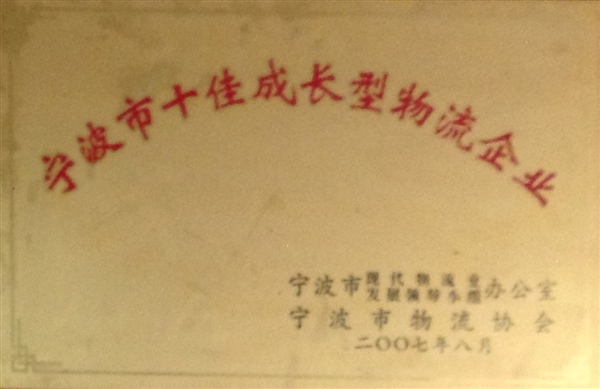 宁波市十佳成长型物流企业
宁波市现代物流业发展领导小组办公室
宁波市物流协会
二〇〇七年八月